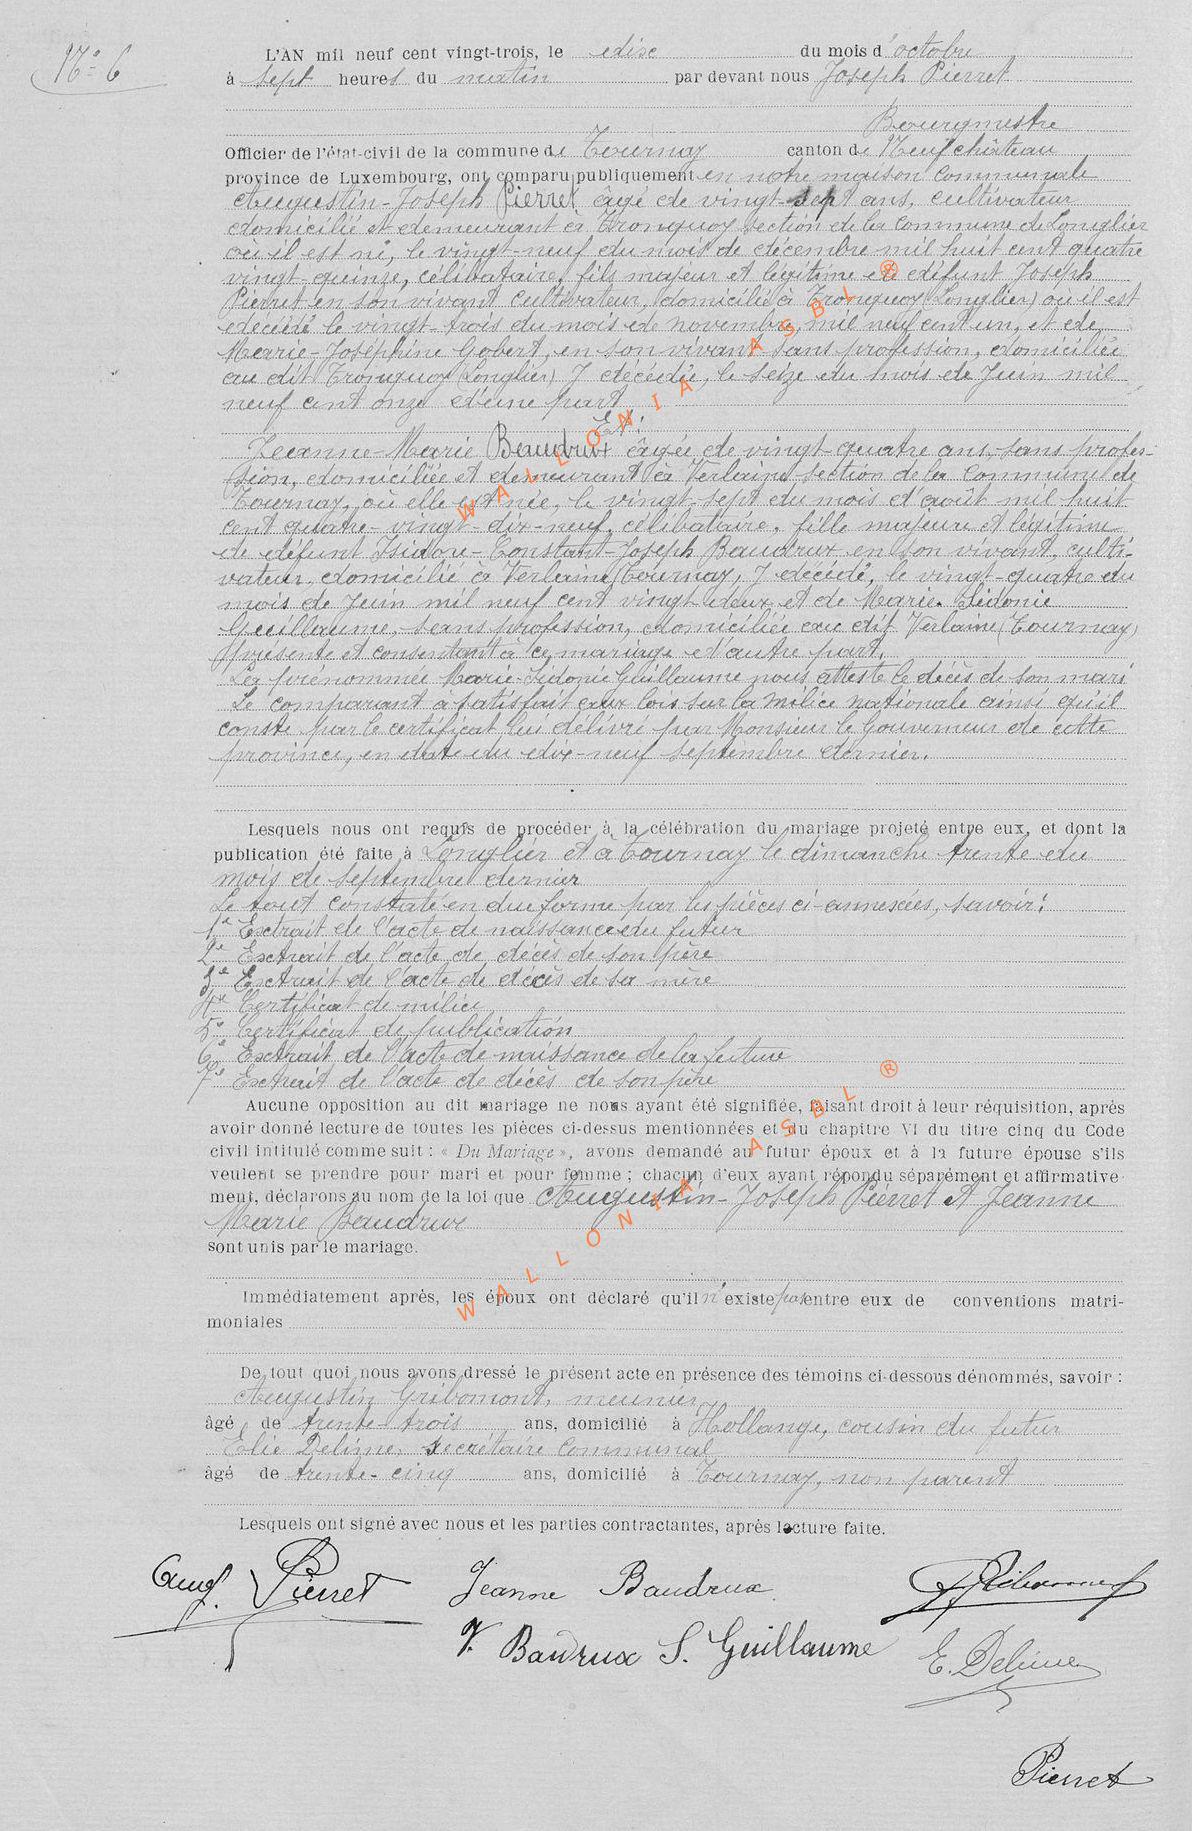 N° 6
L'AN mil neuf cent vingt-trois, le dix du mois d'octobre
à sept heures du matin par devant nous Joseph Pierret
Bourgmestre
Officier de l'état-civil de la commune de Tournay canton de Neufchâteau
province de Luxembourg, ont comparu publiquement en notre maison communale
Augustin-Joseph Pierret âgé de vingt-sept ans, cultivateur
domicilié et demeurant à Tronquoy section de la commune de Longlier
où il est né, le vingt-neuf du mois de décembre mil huit cent quatre
vingt-quinze, célibataire, fils majeur et légitime de défunt Joseph
Pierret en son vivant cultivateur, domicilié à Tronquoy (Longlier) où il est
décédé le vingt-trois du mois de novembre mil neuf cent un, et de
Marie-Joséphine Gobert, en son vivant sans profession, domiciliée
au dit Tronquoy (Longlier) y décédée, le seize du mois de Juin mil
neuf cent onze d'une part
Et:
Jeanne-Marie Baudrux âgée de vingt-quatre ans, sans profes-
sion, domiciliée et demeurant à Verlaine section de la commune de
Tournay, où elle est née, le vingt-sept du mois d'août mil huit
cent quatre-vingt-dix-neuf, célibataire, fille majeure et légitime
de défunt Isidore-Constant-Joseph Baudrux en son vivant, culti-
vateur, domicilié à Verlaine (Tournay, y décédé, le vingt-quatre du
mois de Juin mil neuf cent vingt-deux et de Marie-Sidonie
Guillaume, sans profession, domiciliée au dit Verlaine (Tournay)
présente et consentant à ce mariage d'autre part.
La prénommée Marie-Sidonie Guillaume nous atteste le décès de son mari
Le comparant a satisfait aux lois sur la milice nationale ainsi qu'il
conste par le certificat lui délivré par Monsieur le Gouverneur de cette
province, en date du dix-neuf septembre dernier.
Lesquels nous ont requis de procéder à la célébration du mariage projeté entre eux, et dont la
publication été faite à Longlier et à Tournay le dimanche trente du
mois de septembre dernier
Le tout constaté en due forme par les pièces ci-annexées, savoir:
1e Extrait de l'acte de naissance du futur
2e Extrait de l'acte de décès de son père
3e Extrait de l'acte de décès de sa mère
4e Certificat de milice
5e Certificat de publication
6e Extrait de l'acte de naissance de la future
7e Extrait de l'acte de décès de son père
Aucune opposition au dit mariage ne nous ayant été signifiée, faisant droit à leur réquisition, après
avoir donné lecture de toutes les pièces ci-dessus mentionnées et du chapitre VI du titre cinq du Code
civil intitulé comme suit : « Du Mariage », avons demandé au futur époux et à la future épouse s'ils
veulent se prendre pour mari et pour femme ; chacun d'eux ayant répondu séparément et affirmative
ment, déclarons au nom de la loi que Augustin-Joseph Pierret et Jeanne
Marie Baudrux
sont unis par le mariage.
Immédiatement après, les époux ont déclaré qu'il n'existe pas entre eux de conventions matri-
moniales
De tout quoi nous avons dressé le présent acte en présence des témoins ci-dessous dénommés, savoir :
Augustin Gribomont, meunier
âgé de trente-trois ans, domicilié à Hollange, cousin du futur
Elie Deligne, secrétaire communal
âgé de trente-cinq ans, domicilié à Tournay, non parent
Lesquels ont signé avec nous et les parties contractantes, après lecture faite.
Aug. Pierret Jeanne Baudrux Gribomont
V. Baudrux S. Guillaume E. Deligne
Pierret
WALLONIA ASBL ®
WALLONIA ASBL ®